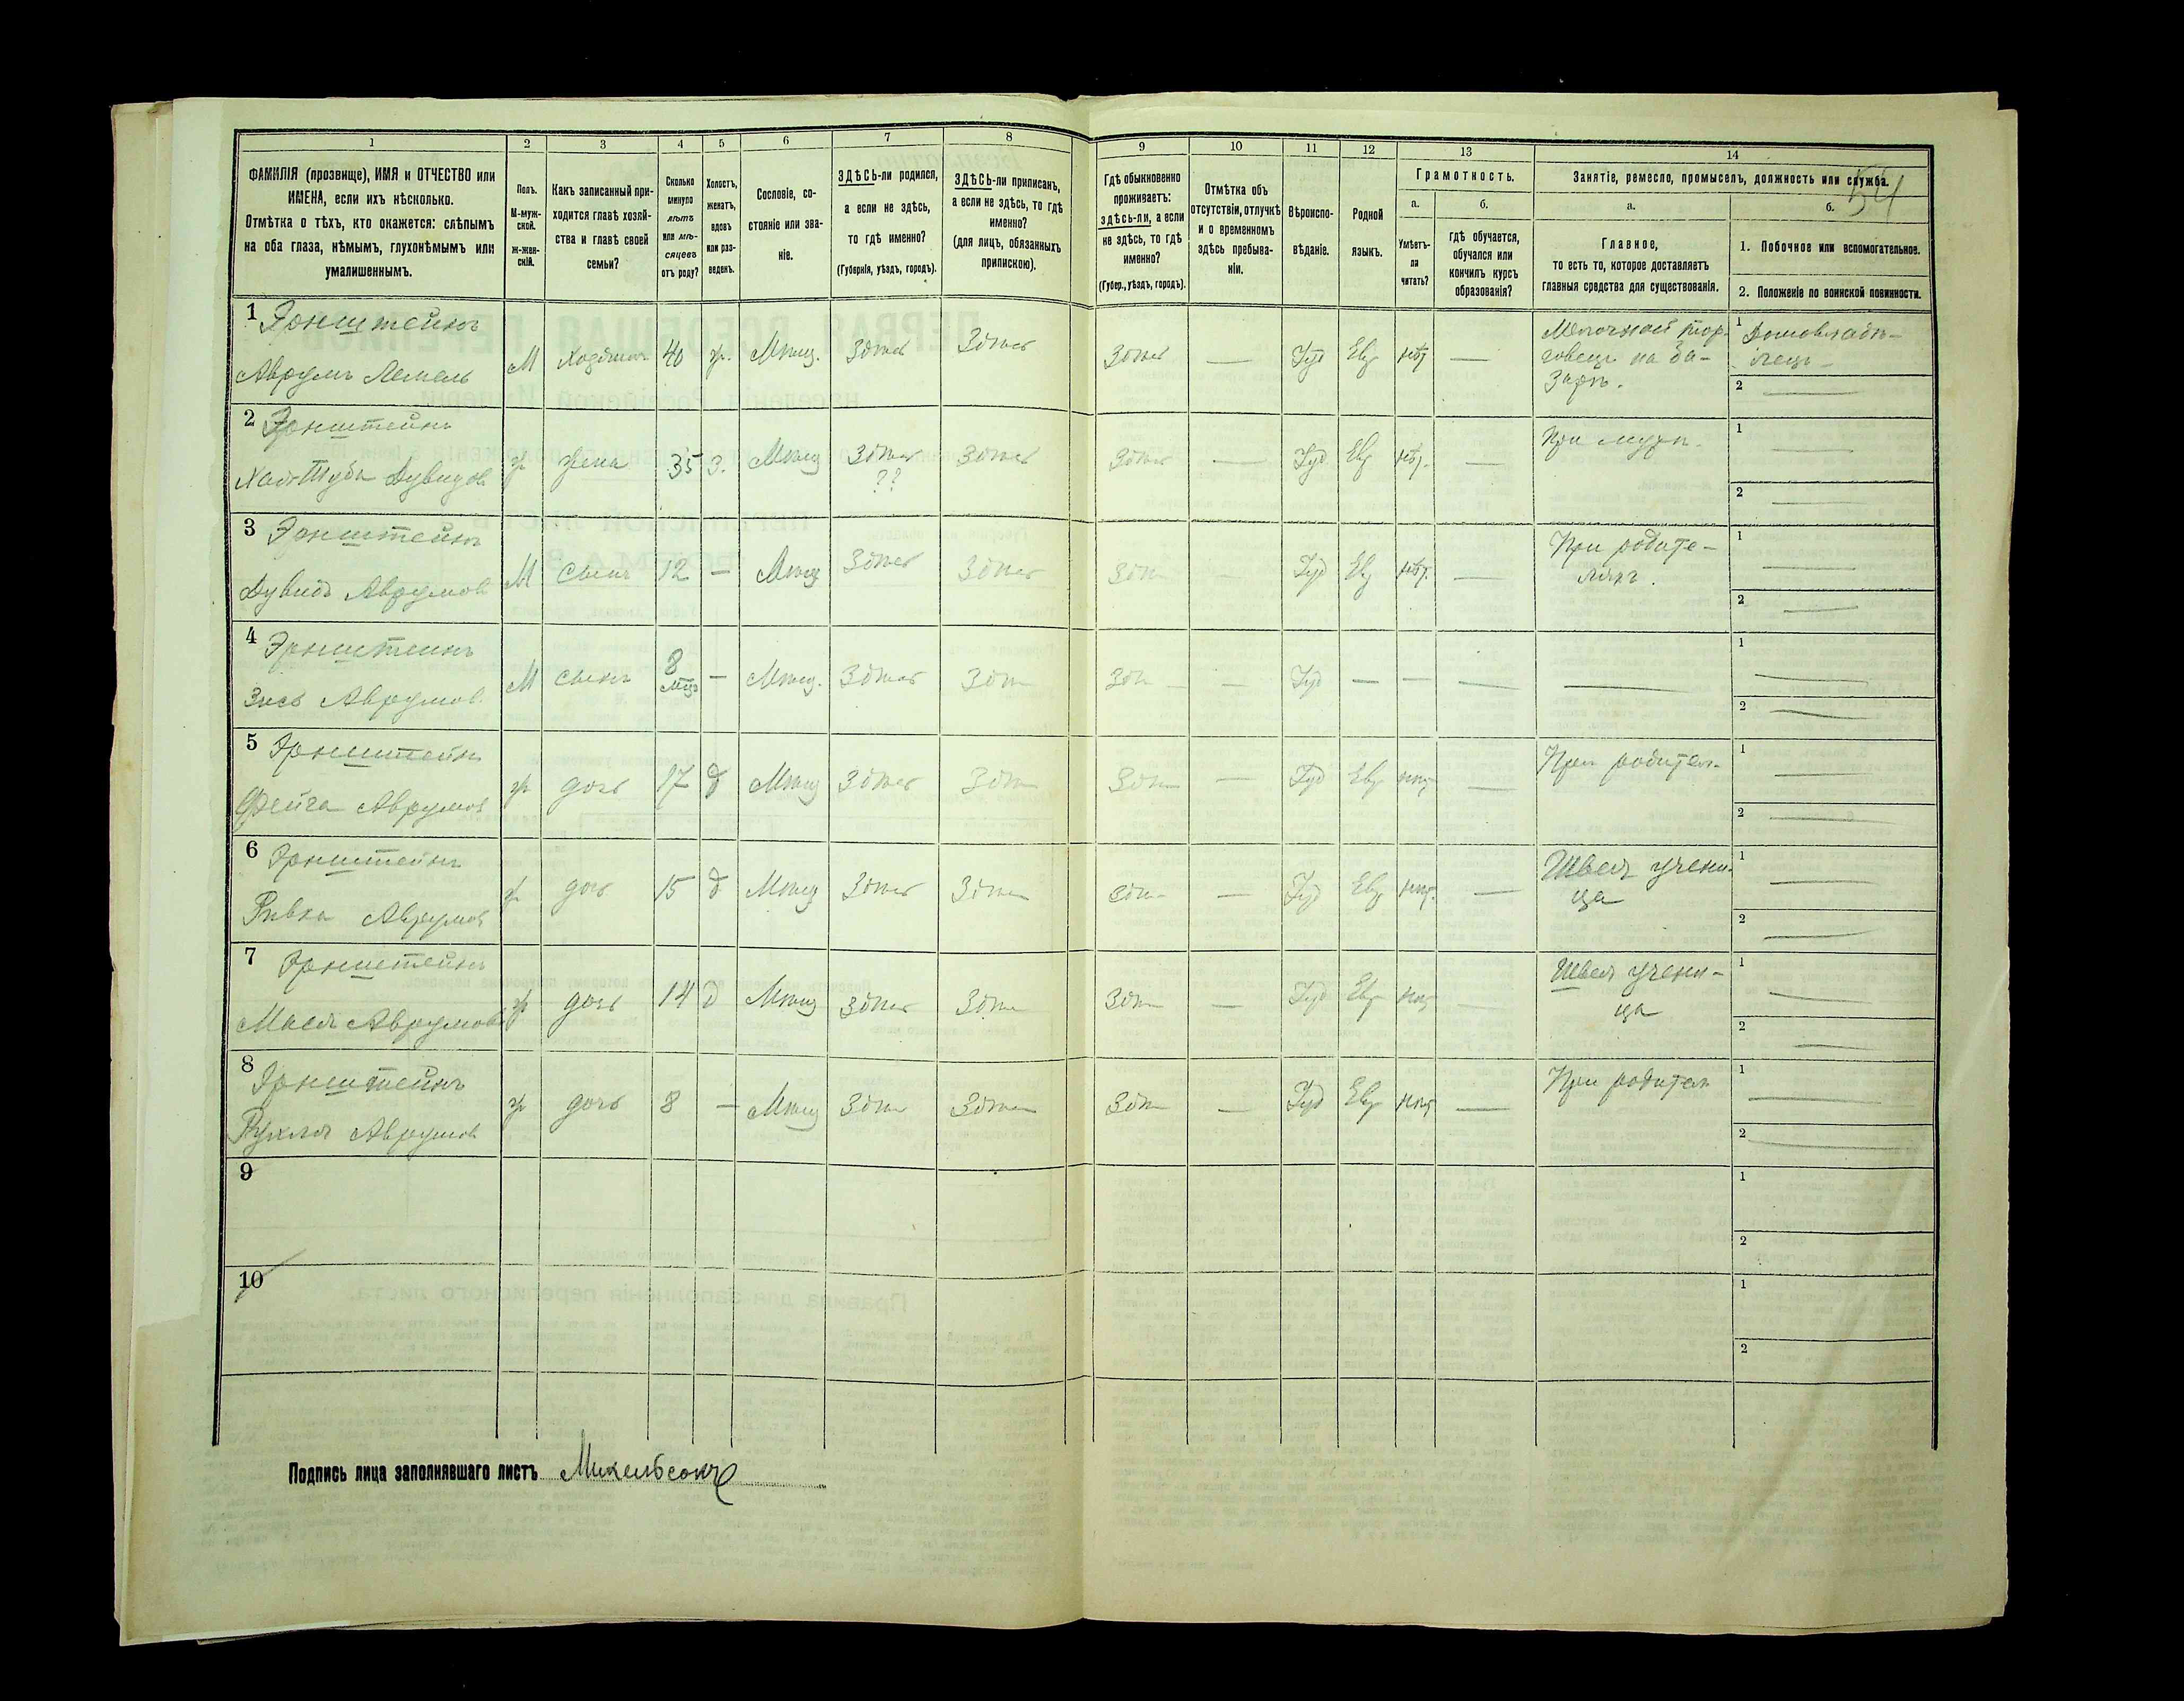 1 2 3 4 5 6 7 8 9 10 11 12 13 14
54
ФАМИЛІЯ (прозвище), ИМЯ и ОТЧЕСТВО или
ИМЕНА, если ихъ нѣсколько.
Отмѣтка о тѣхъ, кто окажется: слѣпымъ
на оба глаза, нѣмымъ, глухонѣмымъ или
умалишеннымъ.
Полъ.
М-муж-
ской.
ж-жен-
скій.
Какъ записанный при-
ходится главѣ хозяй-
ства и главѣ своей
семьи?
Сколько
минуло
лѣтъ
или мѣ-
сяцевъ
отъ роду?
Холостъ,
женатъ,
вдовъ
или раз-
веденъ.
Сословіе, со-
стояніе или зва-
ніе.
ЗДѢСЬ-ли родился,
а если не здѣсь,
то гдѣ именно?
(Губернія, уѣздъ, городъ).
ЗДѢСЬ-ли приписанъ,
а если не здѣсь, то гдѣ
именно?
(для лицъ, обязанныхъ
припискою).
Гдѣ обыкновенно
проживаетъ:
здѣсь-ли, а если
не здѣсь, то гдѣ
именно?
(Губер., уѣздъ, городъ).
Отмѣтка объ
отсутствіи, отлучкѣ
и о временномъ
здѣсь пребыва-
ніи.
Вѣроиспо-
вѣданіе.
Родной
языкъ.
Грамотность.
а.
Умѣетъ-
ли
читать?
б.
гдѣ обучается,
обучался или
кончилъ курсъ
образованія?
Занятіе, ремесло, промыселъ, должность или служба.
а.
Главное,
то есть то, которое доставляетъ
главныя средства для существованія.
б.
1. Побочное или вспомогательное.
2. Положеніе по воинской повинности.
1 Эрнштейнъ
Аврумъ Лемель
М Хозяинъ 40 ж. Мѣщ. Здѣсь Здѣсь Здѣсь — Іуд Евр нѣт —
Мелочной тор-
говецъ на ба-
зарѣ.
1 Домовладѣ-
лецъ —
2 —
2 Эрнштейнъ
Дувидов
ж жена 35 З. Мѣщ Здѣсь Здѣсь Здѣсь — Іуд Евр нѣт. —
??
При мужѣ.
1 —
2 —
3 Эрнштейнъ
Дувидъ Аврумов
М сынъ 12 — Мѣщ Здѣсь Здѣсь Здѣ Іуд Ев нѣт. —
При родите-
ляхъ.
1 —
2 —
4 Эрнштейнъ
Зись Аврумов.
М сынъ 8 мѣс — Мѣщ. Здѣсь Здѣ Здѣ — — Іуд — — — —
1 —
2 —
5 Эрнштейн
Фейга Аврумов
ж дочь 17 д Мѣщ Здѣсь Здѣ Здѣ — Іуд Евр нѣт —
При родител.
1 —
2 —
6 Эрнштейнъ
Ривка Аврумов
ж дочь 15 д Мѣщ Здѣсь Здѣ Здѣ — Іуд Евр нѣт. —
Швея учени-
ца
1 —
2 —
7 Эрнштейнъ
Мася Аврумов
ж дочь 14 д Мѣщ Здѣсь Здѣ Здѣ — Іуд Евр нѣт —
Швея учени-
ца
1 —
2 —
8 Эрнштейнъ
Рухля Аврумов
ж дочь 8 — Мѣщ Здѣ Здѣ Здѣ — Іуд Евр нѣт —
При родител
1 —
2 —
9
1
2
10
1
2
Подпись лица заполнявшаго листъ Михельсонъ